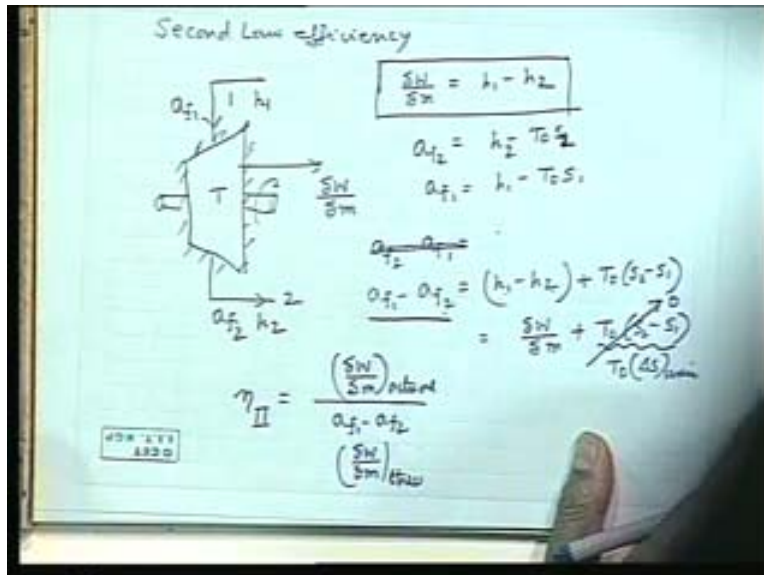 Second Law efficiency
a_f1 1 h1
T
δW/δm
2
a_f2 h2
δW/δm = h1 - h2
a_f2 = h2 - T0 S2
a_f1 = h1 - T0 S1
a_f2 - a_f1 =
a_f1 - a_f2 = (h1 - h2) + T0 (S2 - S1)
= δW/δm + T0 (S2 - S1) 0
T0 (ΔS)uni
η_II = (δW/δm)actual / a_f1 - a_f2
(δW/δm)
© CET
I.I.T. KGP